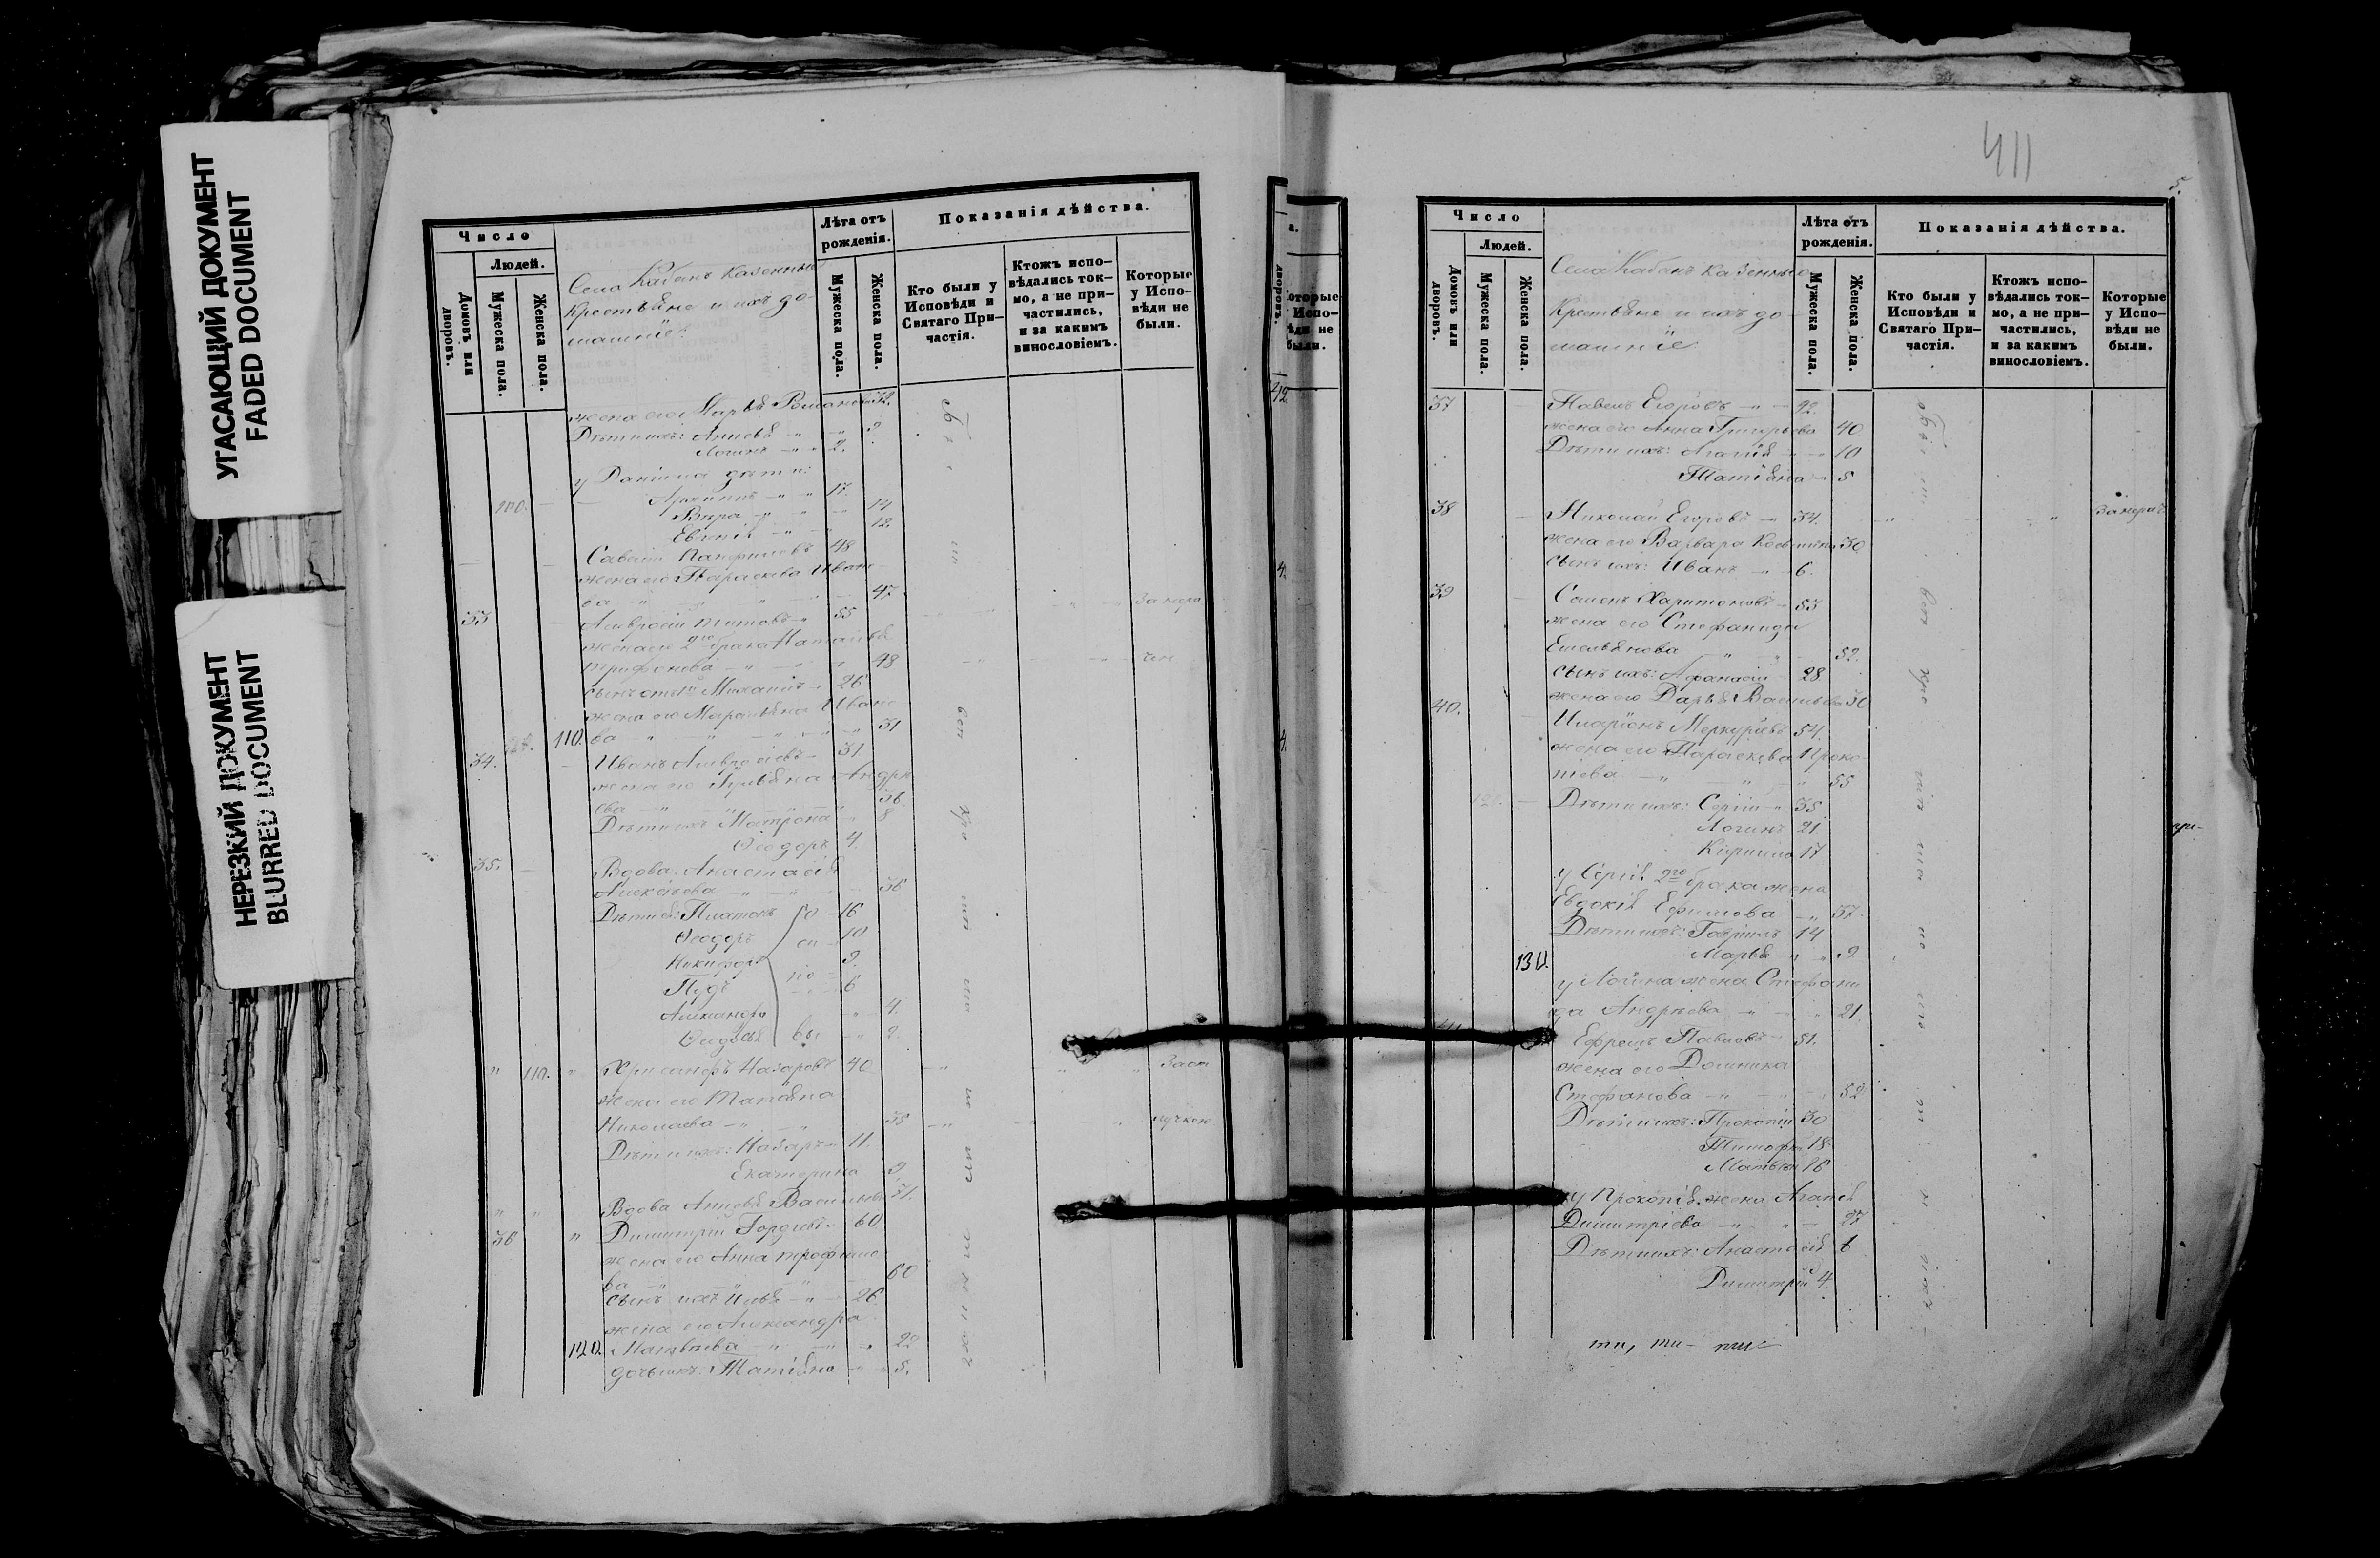 УГАСАЮЩИЙ ДОКУМЕНТ
FADED DOCUMENT
НЕРЕЗКИЙ ДОКУМЕНТ
BLURRED DOCUMENT
Число
Людей.
Домовъ или дворовъ.
Мужеска пола.
Женска пола.
Села Кабанъ казенные
крестьяне и ихъ до-
машніе.
Лѣта отъ рожденія.
Мужеска пола.
Женска пола.
Показанія дѣйства.
Кто были у Исповѣди и Святаго При-частія.
Ктожъ испо-вѣдались ток-мо, а не при-частились, и за какимъ винословіемъ.
Которые у Испо-вѣди не были.
жена его Марья Романова 32.
Дѣти ихъ: Анисья 9
Логинъ 2.
у Даніила дѣти:
100. Архиппъ 17.
Вѣра 14
Евгенія 12
Савелій Панфиловъ 48
жена его Параскева Ивано-
ва 47.
33 Амвросій Титовъ 55
жена его 2го брака Наталья
Трифонова 48
Михаилъ 26
жена его Марѳа Ивано-
110. ва 31
34. Иванъ Амвросіевъ 31
жена его Ульяна Андре-
ева 36
Дѣти ихъ Матрона 8
Ѳеодоръ 4.
35. Вдова Анастасія
Алексѣева 36
Дѣти ея: Платонъ 16
Ѳеодоръ 10
Никифоръ 9.
Пудъ 6
Александра 4.
Ѳеодосья 2.
110. Хрисанфъ Назаровъ 40
жена его Татьяна
Николаева 38
Дѣти ихъ: Назаръ 11.
Екатерина 9
Вдова Анисья Васильева 51.
36 Димитрій Гордѣевъ 60
жена его Анна Трофимо-
ва 60
сынъ ихъ Илья 26
жена его Александра
120. Матвѣева 22
дочь ихъ Татіяна 5.
411
5.
Число
Людей.
Домовъ или дворовъ.
Мужеска пола.
Женска пола.
Села Кабанъ казенные
Крестьяне и ихъ до-
машніе.
Лѣта отъ рожденія.
Мужеска пола.
Женска пола.
Показанія дѣйства.
Кто были у Исповѣди и Святаго При-частія.
Ктожъ испо-вѣдались ток-мо, а не при-частились, и за какимъ винословіемъ.
Которые у Испо-вѣди не были.
37 Павелъ Егоровъ 42.
жена его Анна Григорьева 40
Дѣти ихъ: Агафія 10
Татіяна 5
38 Николай Егоровъ 34.
жена его Варвара 30
сынъ ихъ: Иванъ 6.
39 Семенъ Харитоновъ 53
жена его Стефанида
Емельянова 52.
сынъ ихъ: Афанасій 28
жена его Дарья Васильева 30
40. Иларіонъ Меркурьевъ 54.
жена его Параскева Проко-
піева 55
Дѣти ихъ: Сергій 35
Логинъ 21
Кирилла 17
у Сергія 2го брака жена
Евдокія Ефимова 37.
Дѣти ихъ: Гавріилъ 14
130. Марья 9
у Логина жена Стефани-
да Андреева 21.
Ефремъ Павловъ 51.
жена его Домника
Стефанова 52
Дѣти ихъ: Прокопій 30
Тимофей 18
Матвѣй 16
у Прокопія жена Агафія
Димитріева 27
Дѣти ихъ: Анастасія 6
Димитрій 4.